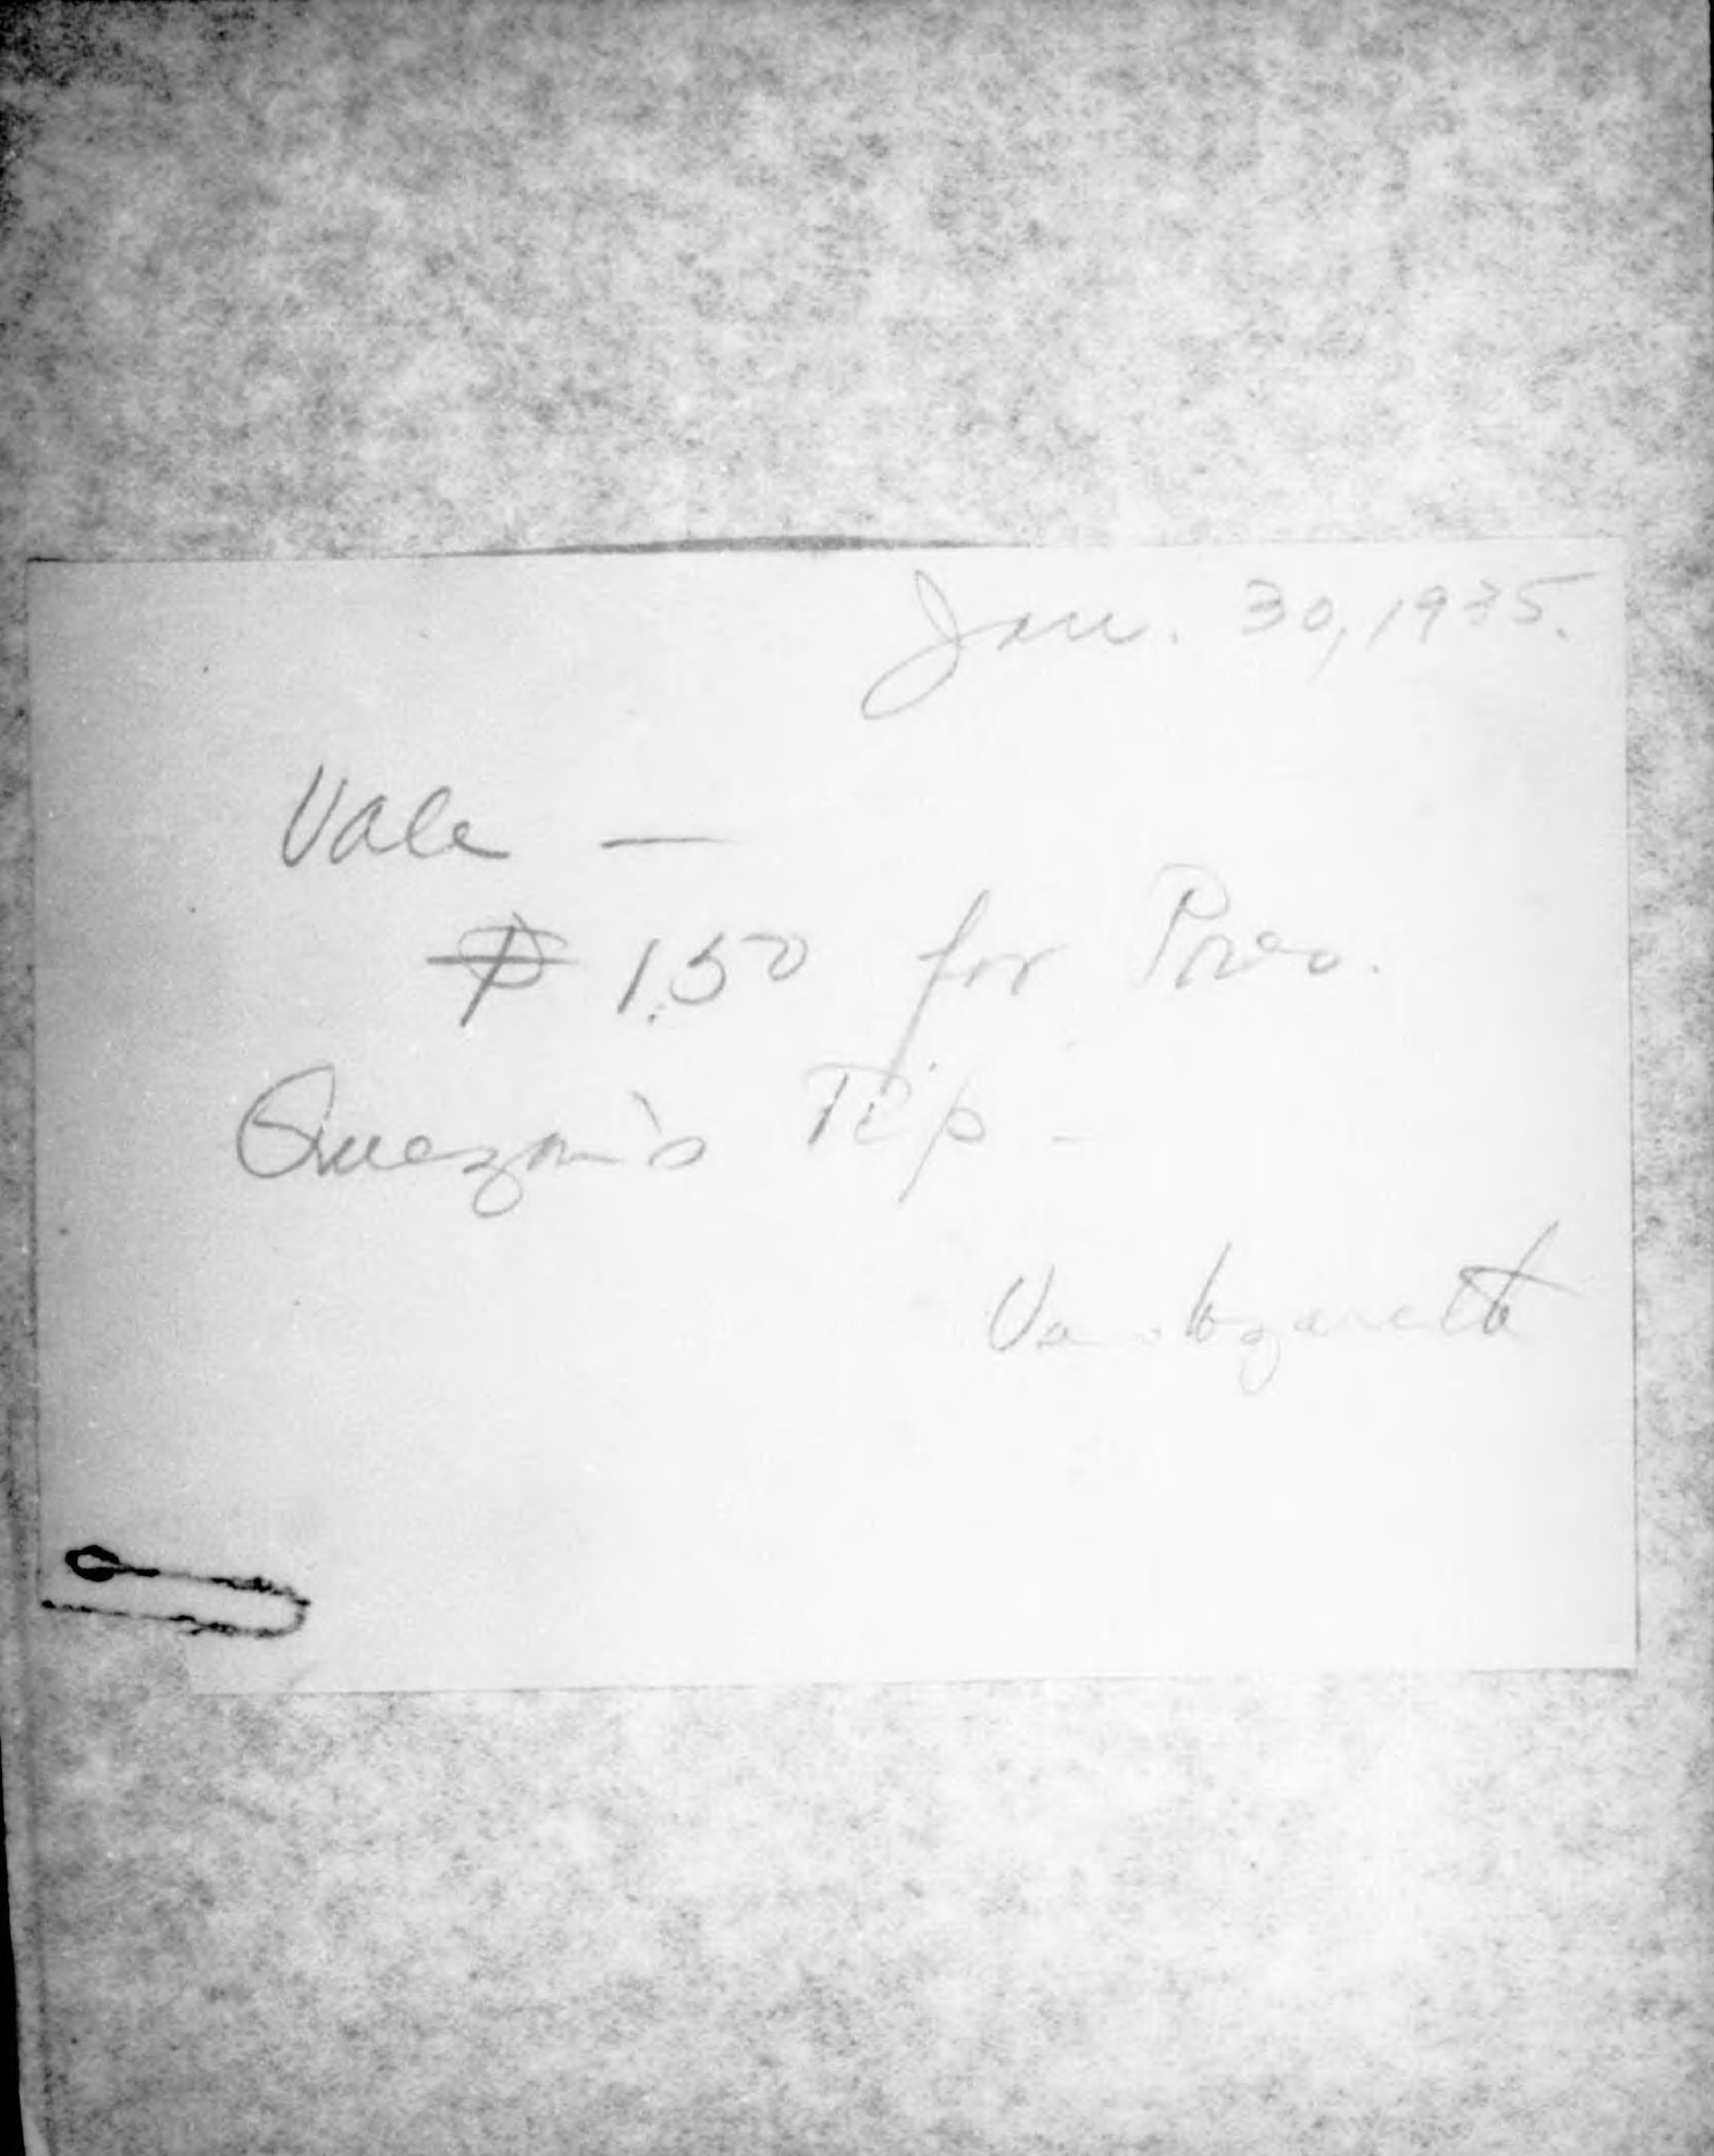 Jan. 30, 1935.
Vale —
₱ 1.50 for Pres.
Quezon's Tip —